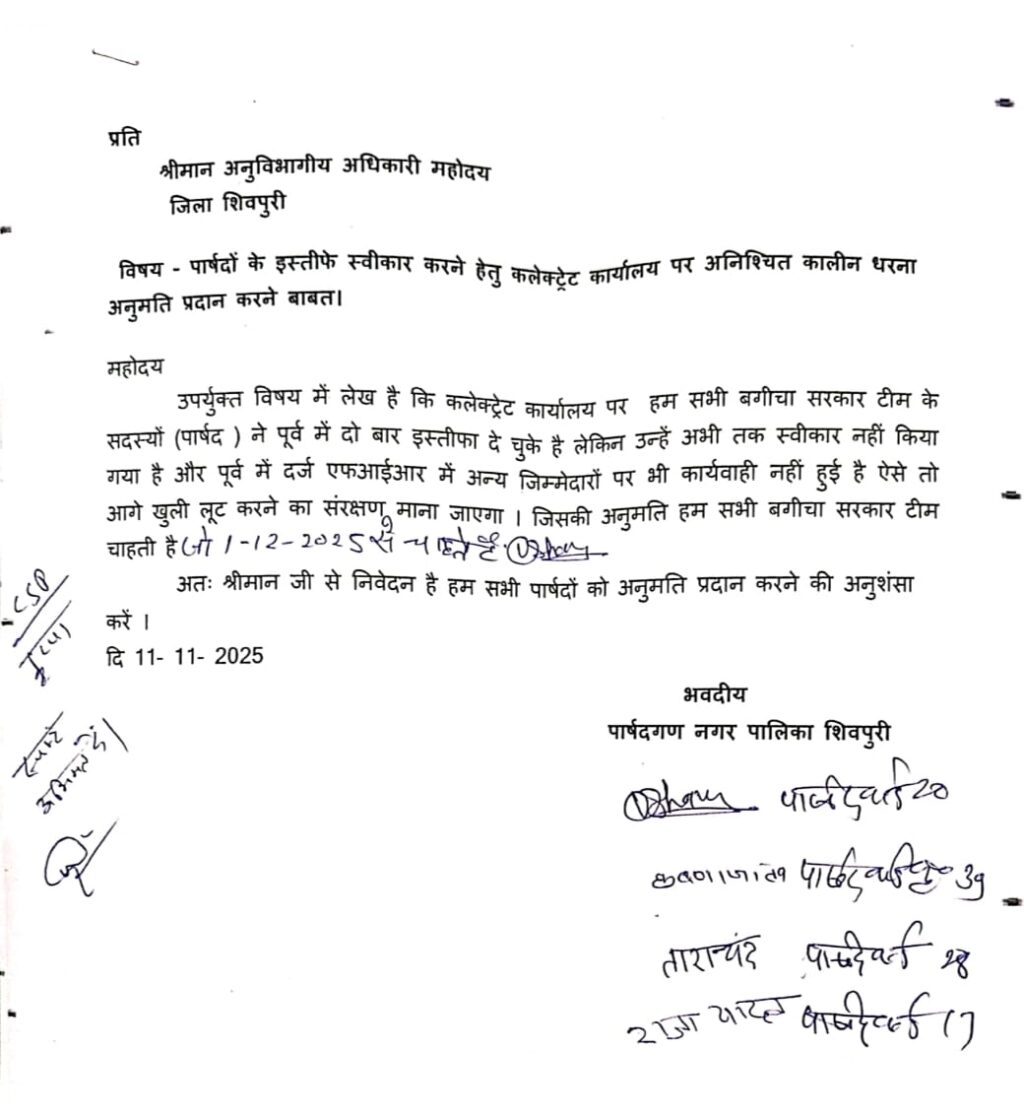 प्रति
श्रीमान अनुविभागीय अधिकारी महोदय
जिला शिवपुरी
विषय - पार्षदों के इस्तीफे स्वीकार करने हेतु कलेक्ट्रेट कार्यालय पर अनिश्चित कालीन धरना
अनुमति प्रदान करने बाबत।
महोदय
उपर्युक्त विषय में लेख है कि कलेक्ट्रेट कार्यालय पर हम सभी बगीचा सरकार टीम के
सदस्यों (पार्षद ) ने पूर्व में दो बार इस्तीफा दे चुके है लेकिन उन्हें अभी तक स्वीकार नहीं किया
गया है और पूर्व में दर्ज एफआईआर में अन्य जिम्मेदारों पर भी कार्यवाही नहीं हुई है ऐसे तो
आगे खुली लूट करने का संरक्षण माना जाएगा । जिसकी अनुमति हम सभी बगीचा सरकार टीम
चाहती है जो 1-12-2025 से चाहते हैं.
अतः श्रीमान जी से निवेदन है हम सभी पार्षदों को अनुमति प्रदान करने की अनुशंसा
करें ।
दि 11- 11- 2025
CSP
भवदीय
पार्षदगण नगर पालिका शिवपुरी
पार्षद वार्ड 20
पार्षद वार्ड 39
ताराचंद पार्षद वार्ड
राजा यादव पार्षद वार्ड 17